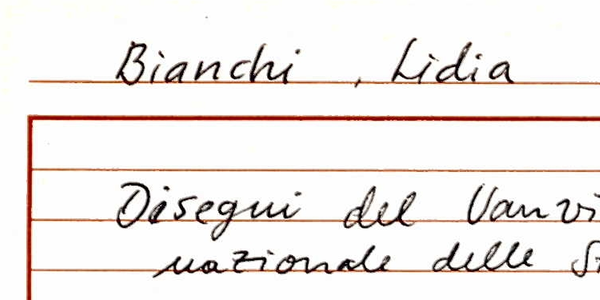 Bianchi , Lidia
Disegni del Vanvi
nazionale delle St